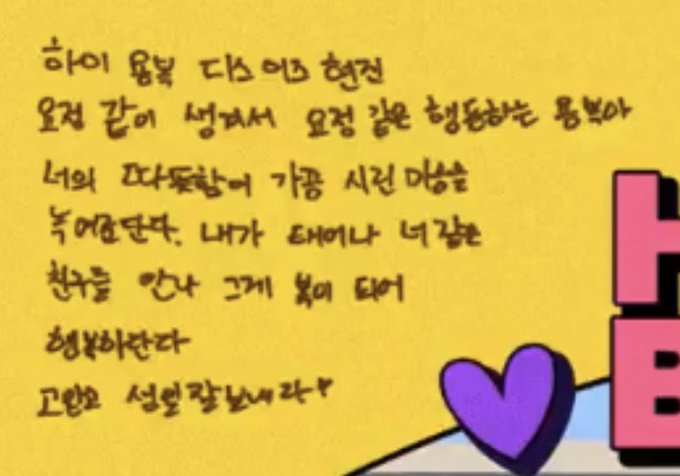 하이 용복 디스 이즈 현진
요정 같이 생겨서 요정 같은 행동하는 용복아
너의 따뜻함이 가끔 시린 마음을
녹여준단다. 내가 태어나 너같은
친구를 만나 그게 복이 되어
행복하단다
고맙고 생일 잘 보내라♥
H
B